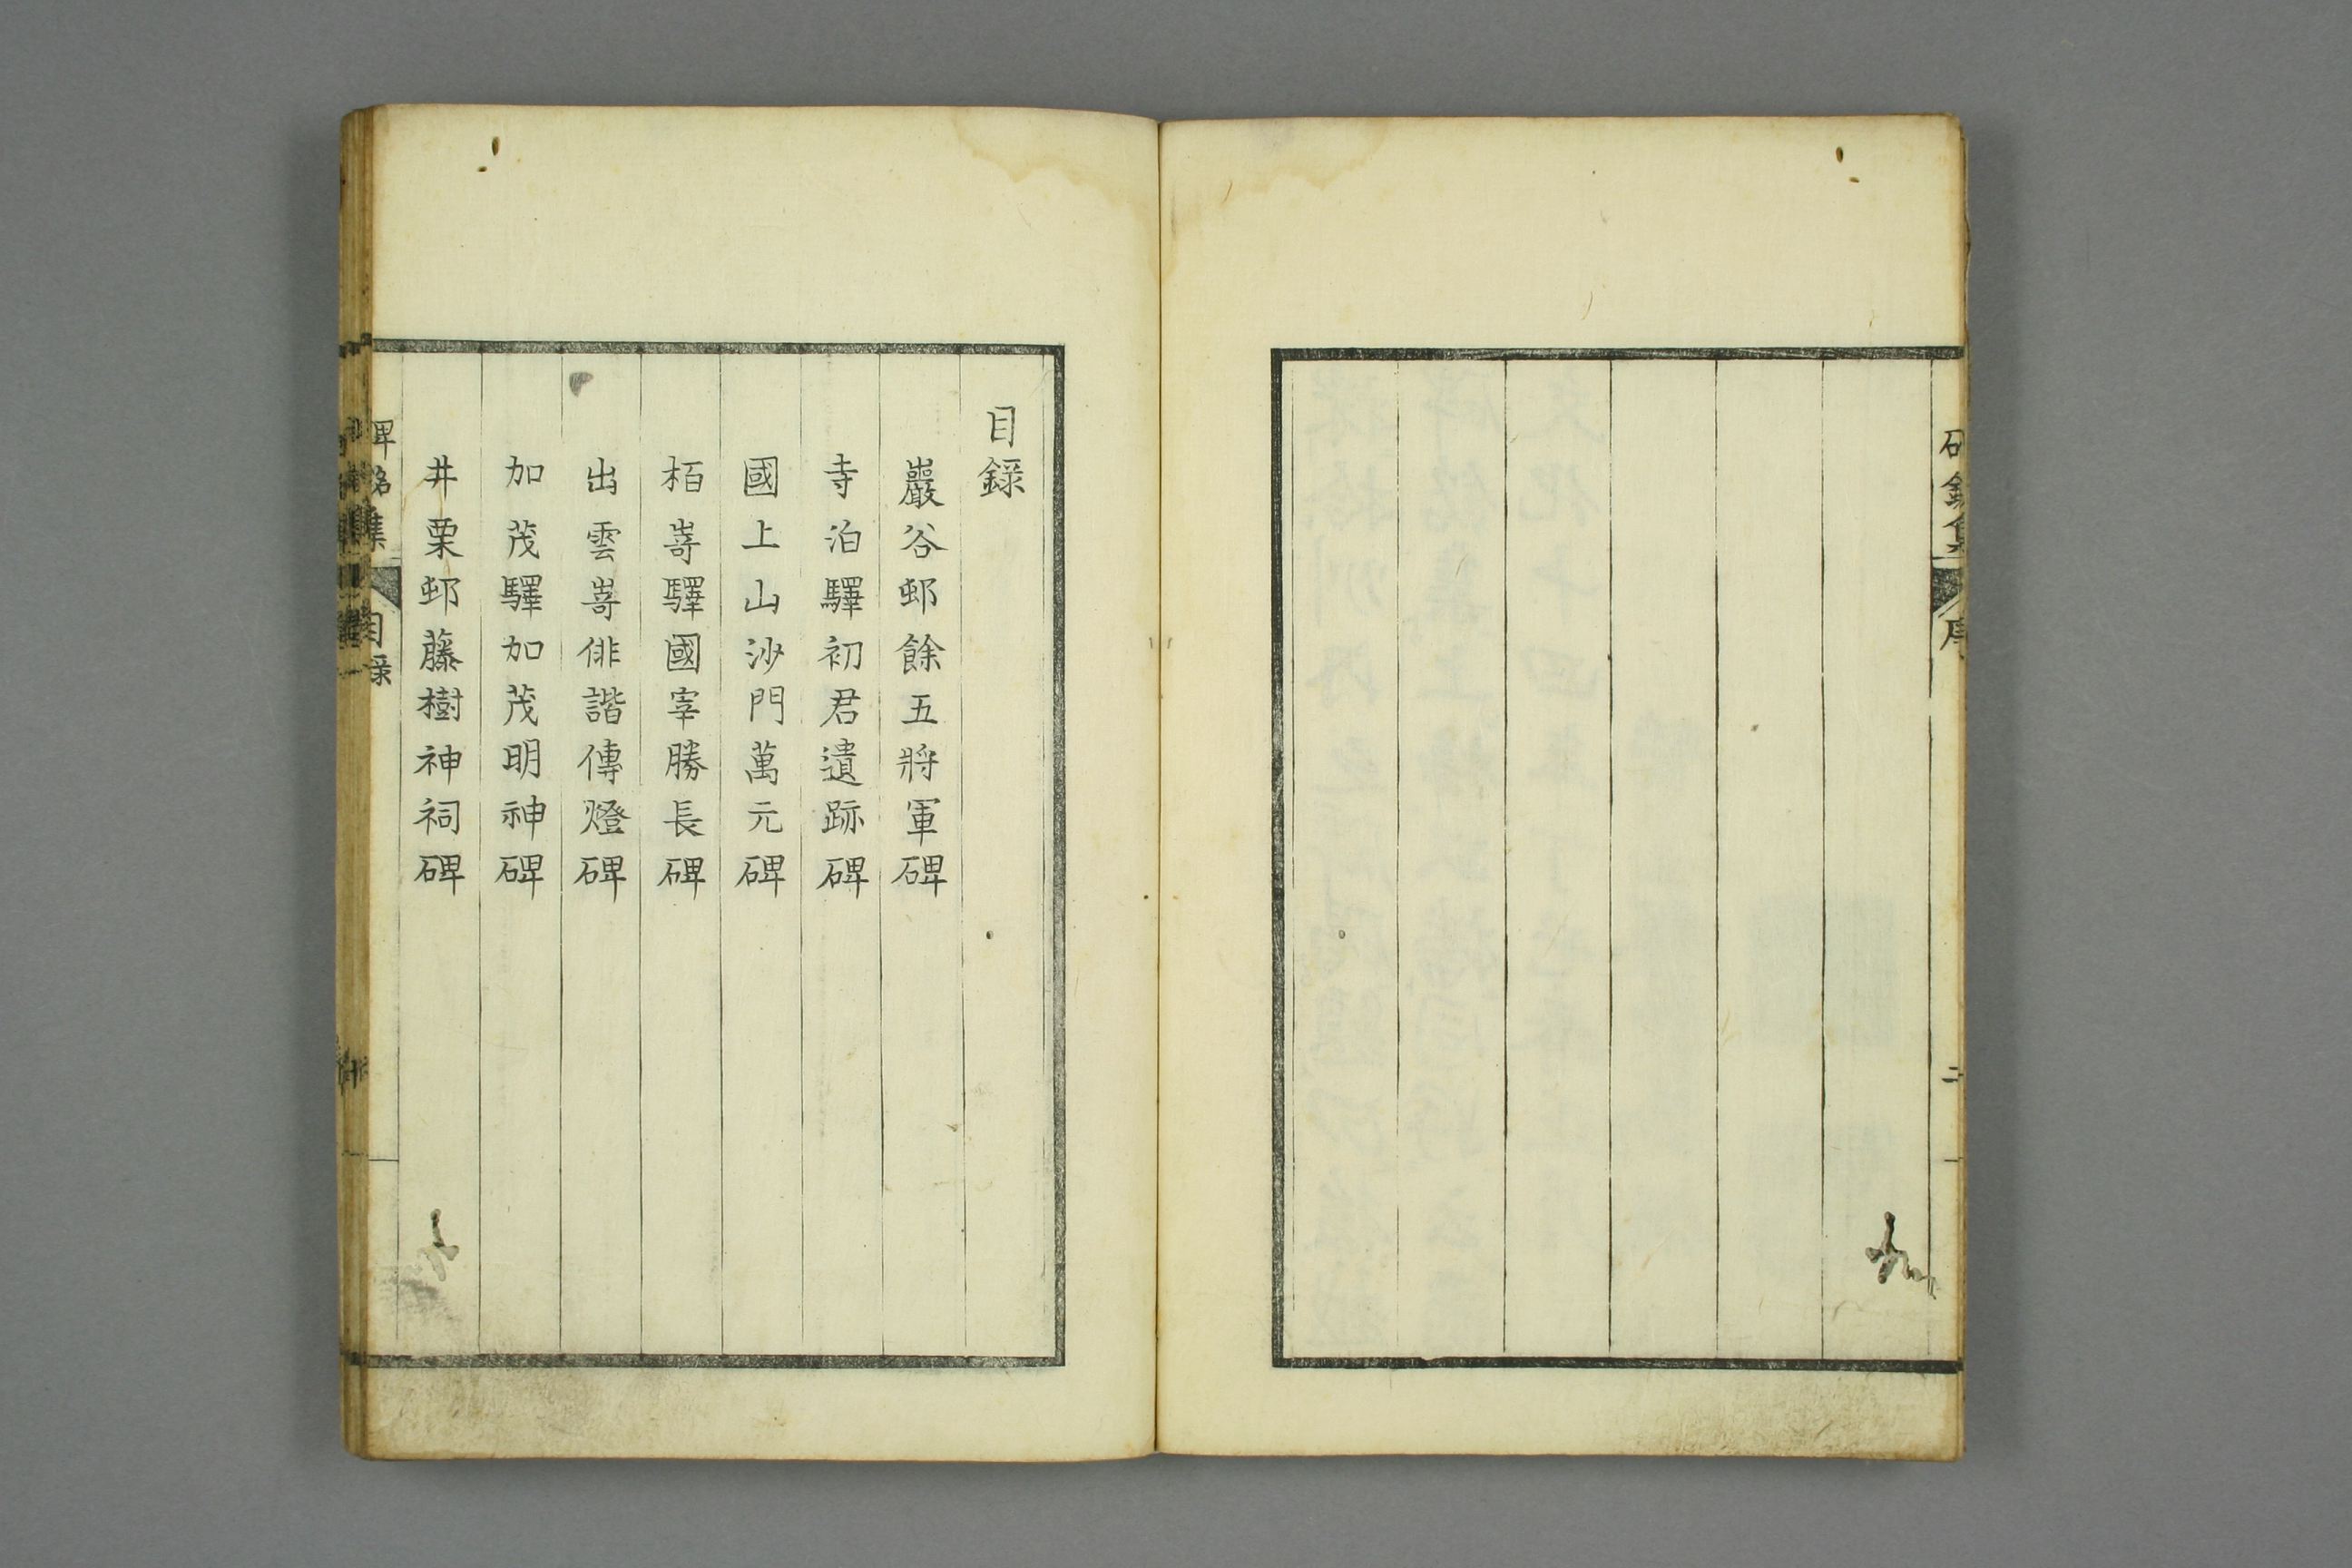 碑銘集
序
二
目錄
巖谷邨餘五將軍碑
寺泊驛初君遺跡碑
國上山沙門萬元碑
栢嵜驛國宰勝長碑
出雲嵜俳諧傳燈碑
加茂驛加茂明神碑
井栗邨藤樹神祠碑
碑銘集
目录